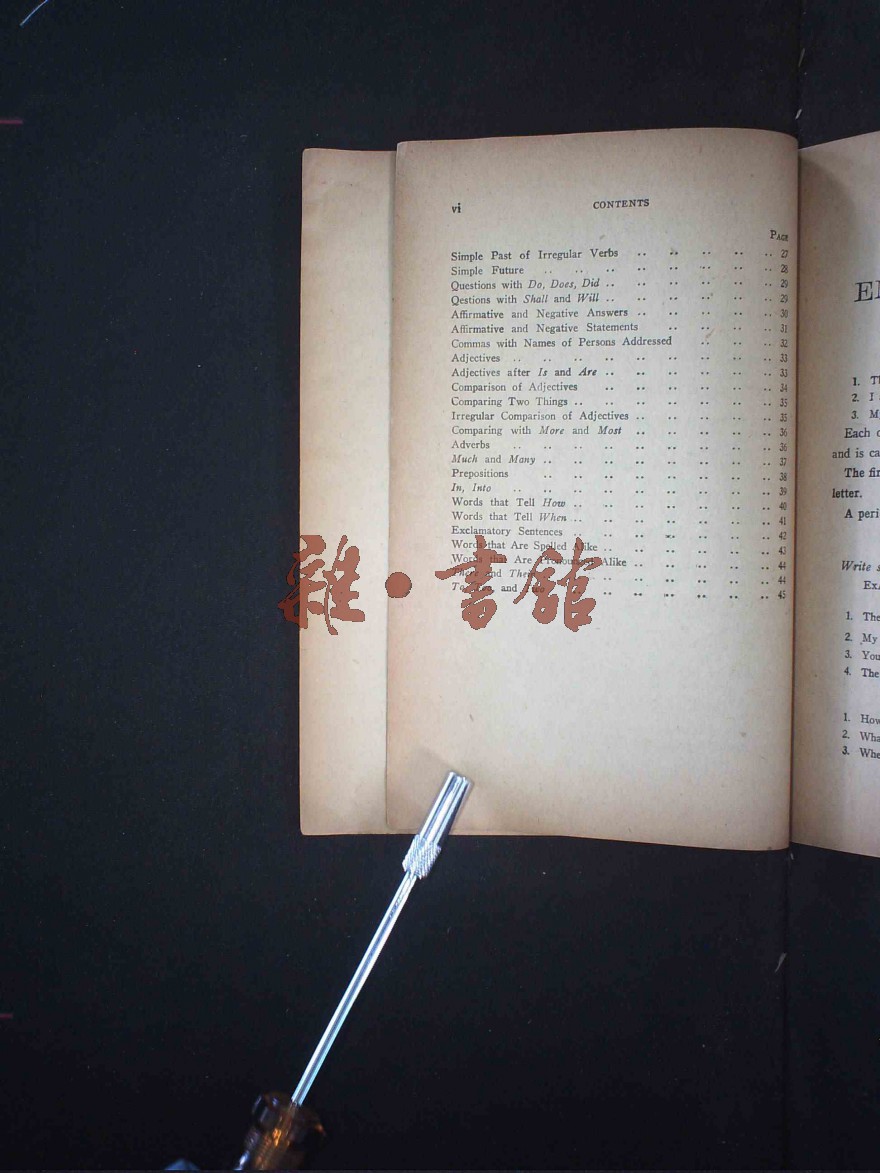 vi CONTENTS
PAGE
Simple Past of Irregular Verbs .. .. .. .. .. 27
Simple Future .. .. .. .. .. .. .. .. 28
Questions with Do, Does, Did .. .. .. .. .. .. 29
Qestions with Shall and Will .. .. .. .. .. .. 29
Affirmative and Negative Answers .. .. .. .. .. 30
Affirmative and Negative Statements .. .. .. .. 31
Commas with Names of Persons Addressed .. .. .. 32
Adjectives .. .. .. .. .. .. .. .. .. 33
Adjectives after Is and Are .. .. .. .. .. .. 33
Comparison of Adjectives .. .. .. .. .. .. 34
Comparing Two Things .. .. .. .. .. .. .. 35
Irregular Comparison of Adjectives .. .. .. .. .. 35
Comparing with More and Most .. .. .. .. .. 36
Adverbs .. .. .. .. .. .. .. .. 36
Much and Many .. .. .. .. .. .. .. .. 37
Prepositions .. .. .. .. .. .. .. .. 38
In, Into .. .. .. .. .. .. .. .. .. 39
Words that Tell How .. .. .. .. .. .. .. 40
Words that Tell When .. .. .. .. .. .. .. 41
Exclamatory Sentences .. .. .. .. .. .. .. 42
Words that Are Spelled Alike .. .. .. .. .. .. 43
Words that Are Pronounced Alike .. .. .. .. .. 44
There and Their .. .. .. .. .. .. .. 44
To, Too, and Two .. .. .. .. .. .. .. 45
雜·書館
1. Th
2. I
3. M
Each
and is ca
The fir
letter.
A peri
Write s
Ex
1. The
2. My
3. You
4. The
1. How
2. Wha
3. Whe